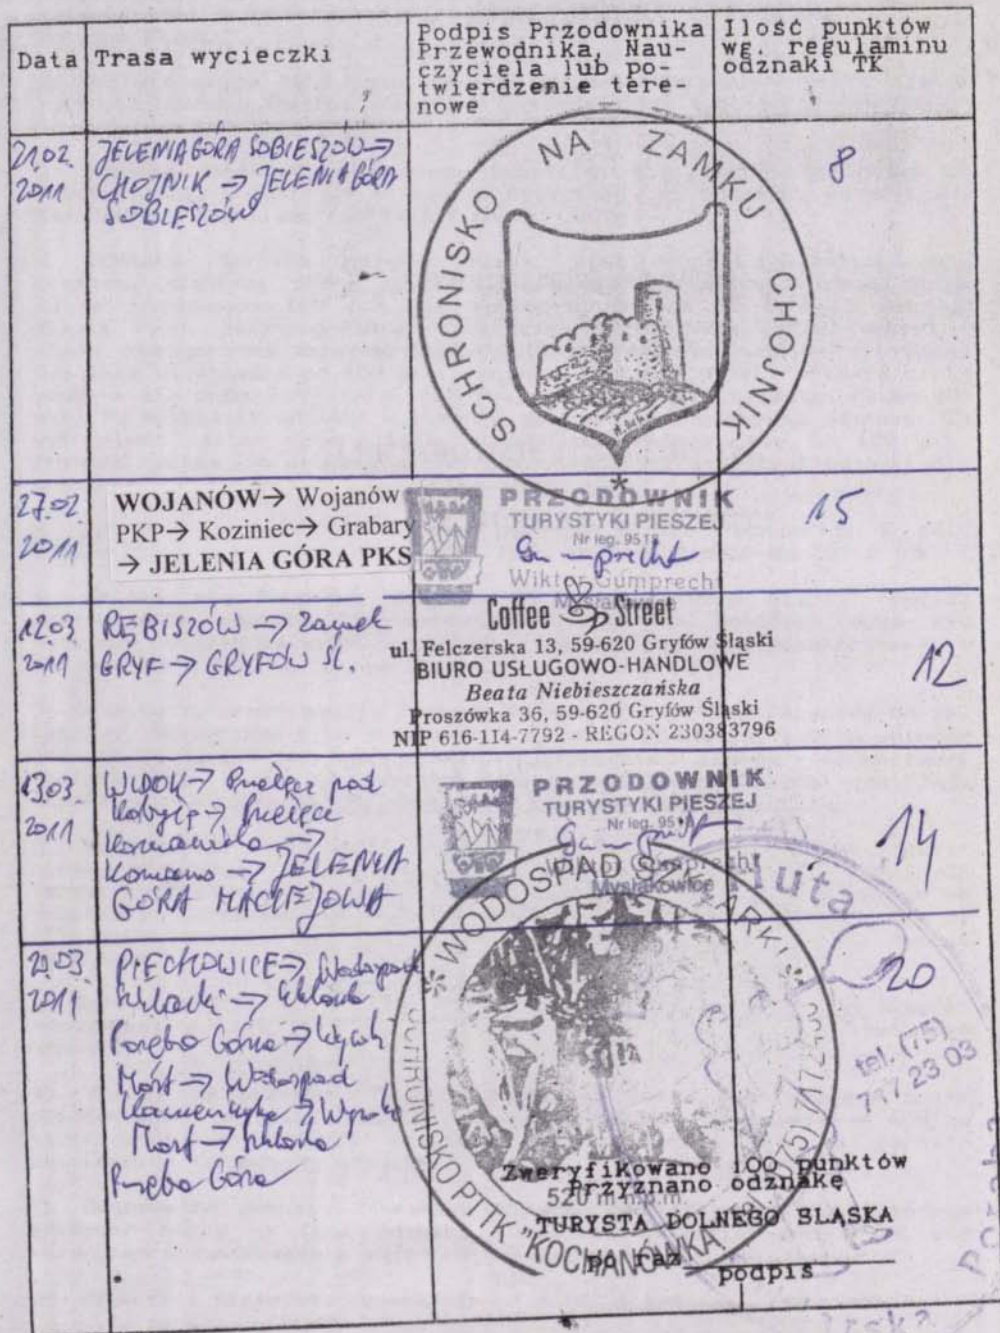 Data
Trasa wycieczki
Podpis Przodownika
Przewodnika, Nau-
czyciela lub po-
twierdzenie tere-
nowe
Ilość punktów
wg. regulaminu
odznaki TK
21.02.
2011
JELENIA GÓRA SOBIESZÓW →
CHOJNIK → JELENIA GÓRA
SOBIESZÓW
SCHRONISKO NA ZAMKU CHOJNIK *
8
27.02
2011
WOJANÓW→ Wojanów
PKP→ Koziniec→ Grabary
→ JELENIA GÓRA PKS
PRZODOWNIK
TURYSTYKI PIESZEJ
Nr leg. 951
Wiktor Gumprecht
Mysłakowice
15
12.03
2011
RĘBISZÓW → Zamek
GRYF → GRYFÓW ŚL.
Coffee Street
ul. Felczerska 13, 59-620 Gryfów Śląski
BIURO USŁUGOWO-HANDLOWE
Beata Niebieszczańska
Proszówka 36, 59-620 Gryfów Śląski
NIP 616-114-7792 - REGON 230383796
12
13.03
2011
WIDOK → Przełęcz pod
→ Przełęcz
Komarnicka →
Komarno → JELENIA
GÓRA MACIEJOWA
PRZODOWNIK
TURYSTYKI PIESZEJ
Nr leg. 951
Wiktor Gumprecht
Mysłakowice
14
20.03
2011
PIECHOWICE → Wodospad
Szklarki → Szklarska
Poręba Górna → Wysoki
Most → Wodospad
Kamieńczyka → Wysoki
Most → Szklarska
Poręba Górna
* WODOSPAD SZKLARKI *
SCHRONISKO PTTK "KOCHANÓWKA"
520 m n.p.m.
20
tel. (75)
717 23 03
Zweryfikowano 100 punktów
Przyznano odznakę
TURYSTA DOLNEGO SLĄSKA
po raz
podpis